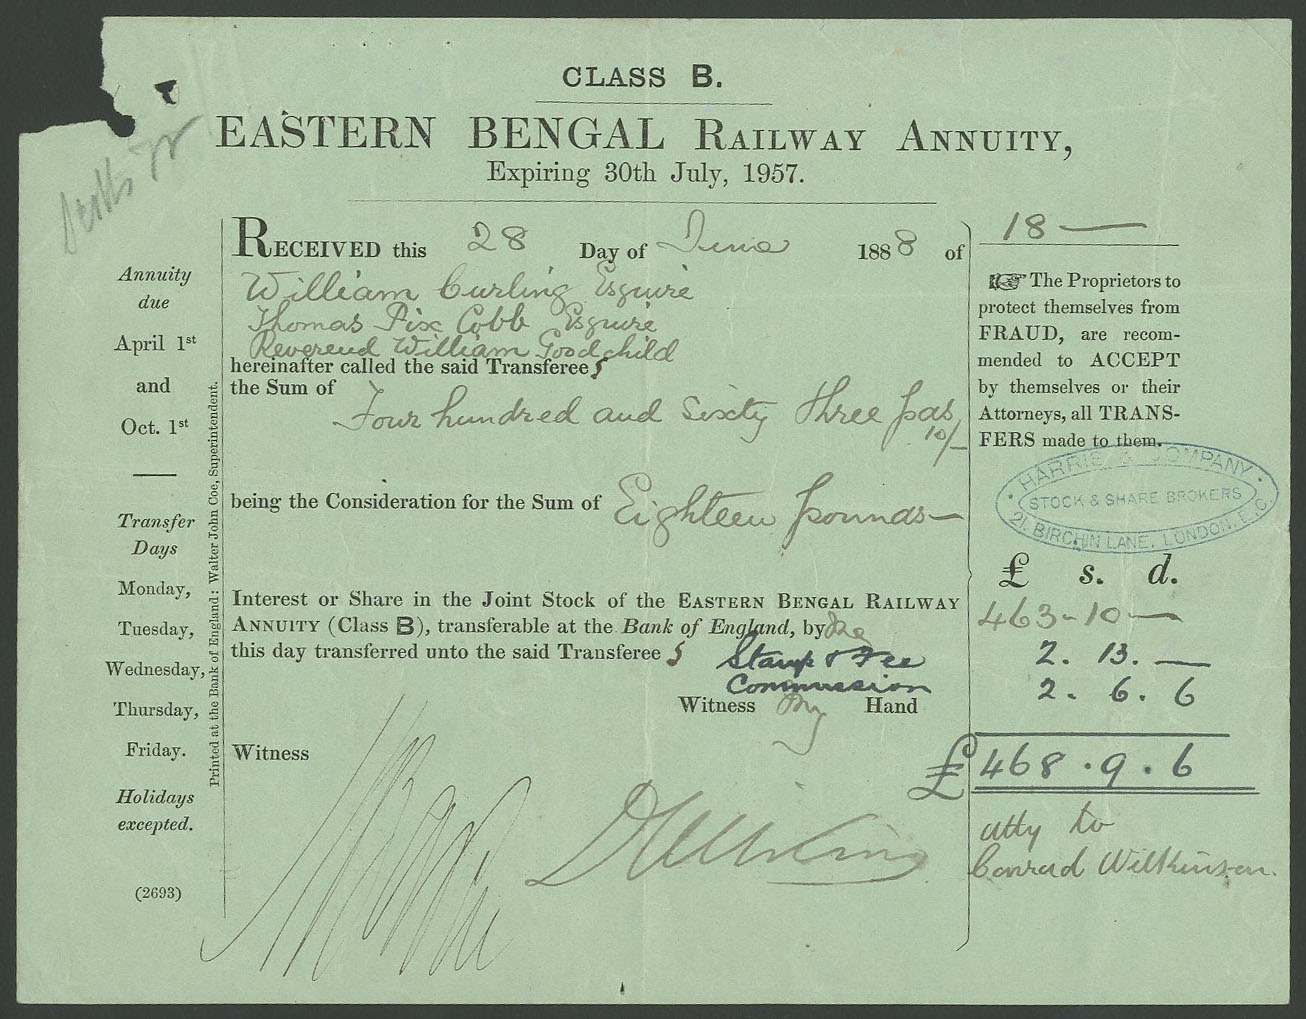 CLASS B.
EASTERN BENGAL RAILWAY ANNUITY,
Expiring 30th July, 1957.
RECEIVED this 28 Day of June 1888 of
William Curling Esquire
Thomas Pix Cobb Esquire
Reverend William Goodchild
hereinafter called the said Transferees
the Sum of
Four hundred and sixty three pds
10/-
being the Consideration for the Sum of Eighteen pounds—
Interest or Share in the Joint Stock of the EASTERN BENGAL RAILWAY
ANNUITY (Class B), transferable at the Bank of England, by me
this day transferred unto the said Transferees
Stamp & Fee
Commission
Witness My Hand
Witness
Annuity
due
April 1st
and
Oct. 1st
Transfer
Days
Monday,
Tuesday,
Wednesday,
Thursday,
Friday.
Holidays
excepted.
(2693)
Printed at the Bank of England: Walter John Coe, Superintendent.
18—
The Proprietors to
protect themselves from
FRAUD, are recom-
mended to ACCEPT
by themselves or their
Attorneys, all TRANS-
FERS made to them.
HARRIS & COMPANY
STOCK & SHARE BROKERS
21, BIRCHIN LANE, LONDON, E.C.
£ s. d.
463-10-
2. 13. —
2. 6. 6
£468.9.6
atty to
Conrad Wilkinson.